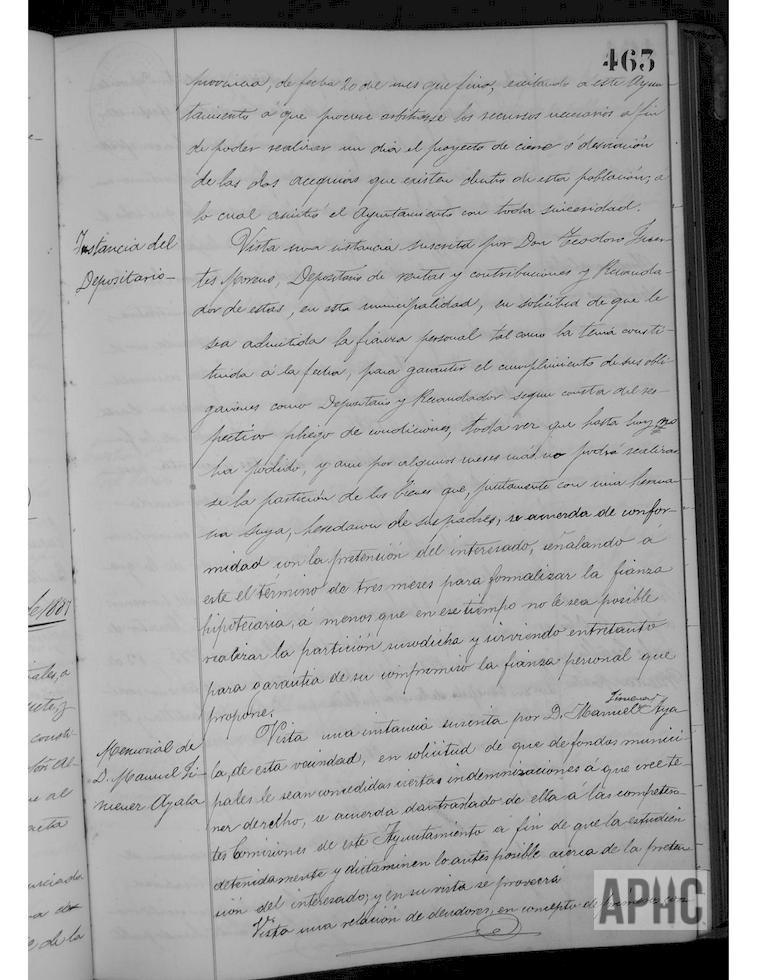 463
provincia, de fecha 20 del mes que fina, excitando a este Ayun-
tamiento á que procure arbitrarse los recursos necesarios a fin
de poder realizar un dia el proyecto de cierre ó desviación
de las dos acequias que existen dentro de esta población, a
lo cual asintió el Ayuntamiento con toda sinceridad.
Instancia del
Depositario—
Vista una instancia suscrita por Don Teodoro Fuen-
tes Moreno, Depositario de rentas y contribuciones y Recauda-
dor de estas, en esta municipalidad, en solicitud de que le
sea admitida la fianza personal tal como la tenia consti-
tuida á la fecha, para garantir el cumplimiento de sus obli-
gaciones como Depositario y Recaudador segun consta del res-
pectivo pliego de condiciones, toda vez que hasta hoy no
ha podido, y aun por algunos meses más no podrá realizar-
se la partición de los bienes que, juntamente con una herma-
na suya, heredaron de sus padres, se acuerda de confor-
midad con la pretención del interesado, señalando á
este el término de tres meses para formalizar la fianza
hipoteciaria, á menos que en ese tiempo no le sea posible
realizar la partición susodicha y sirviendo entretanto
para garantia de su compromiso la fianza personal que
propone.
Memorial de
D. Manuel Ji-
menez Ayala
Vista una instancia suscrita por D. Manuel Jimenez Aya-
la, de esta vecindad, en solicitud de que de fondos munici-
pales le sean concedidas ciertas indemnizaciones á que cree te-
ner derecho, se acuerda dar traslado de ella á las competen-
tes Comisiones de este Ayuntamiento a fin de que la estudien
detenidamente y dictaminen lo antes posible acerca de la preten-
ción del interesado, y en su vista se proveerá
Vista una relación de deudores, en concepto de
de 1887
APHC